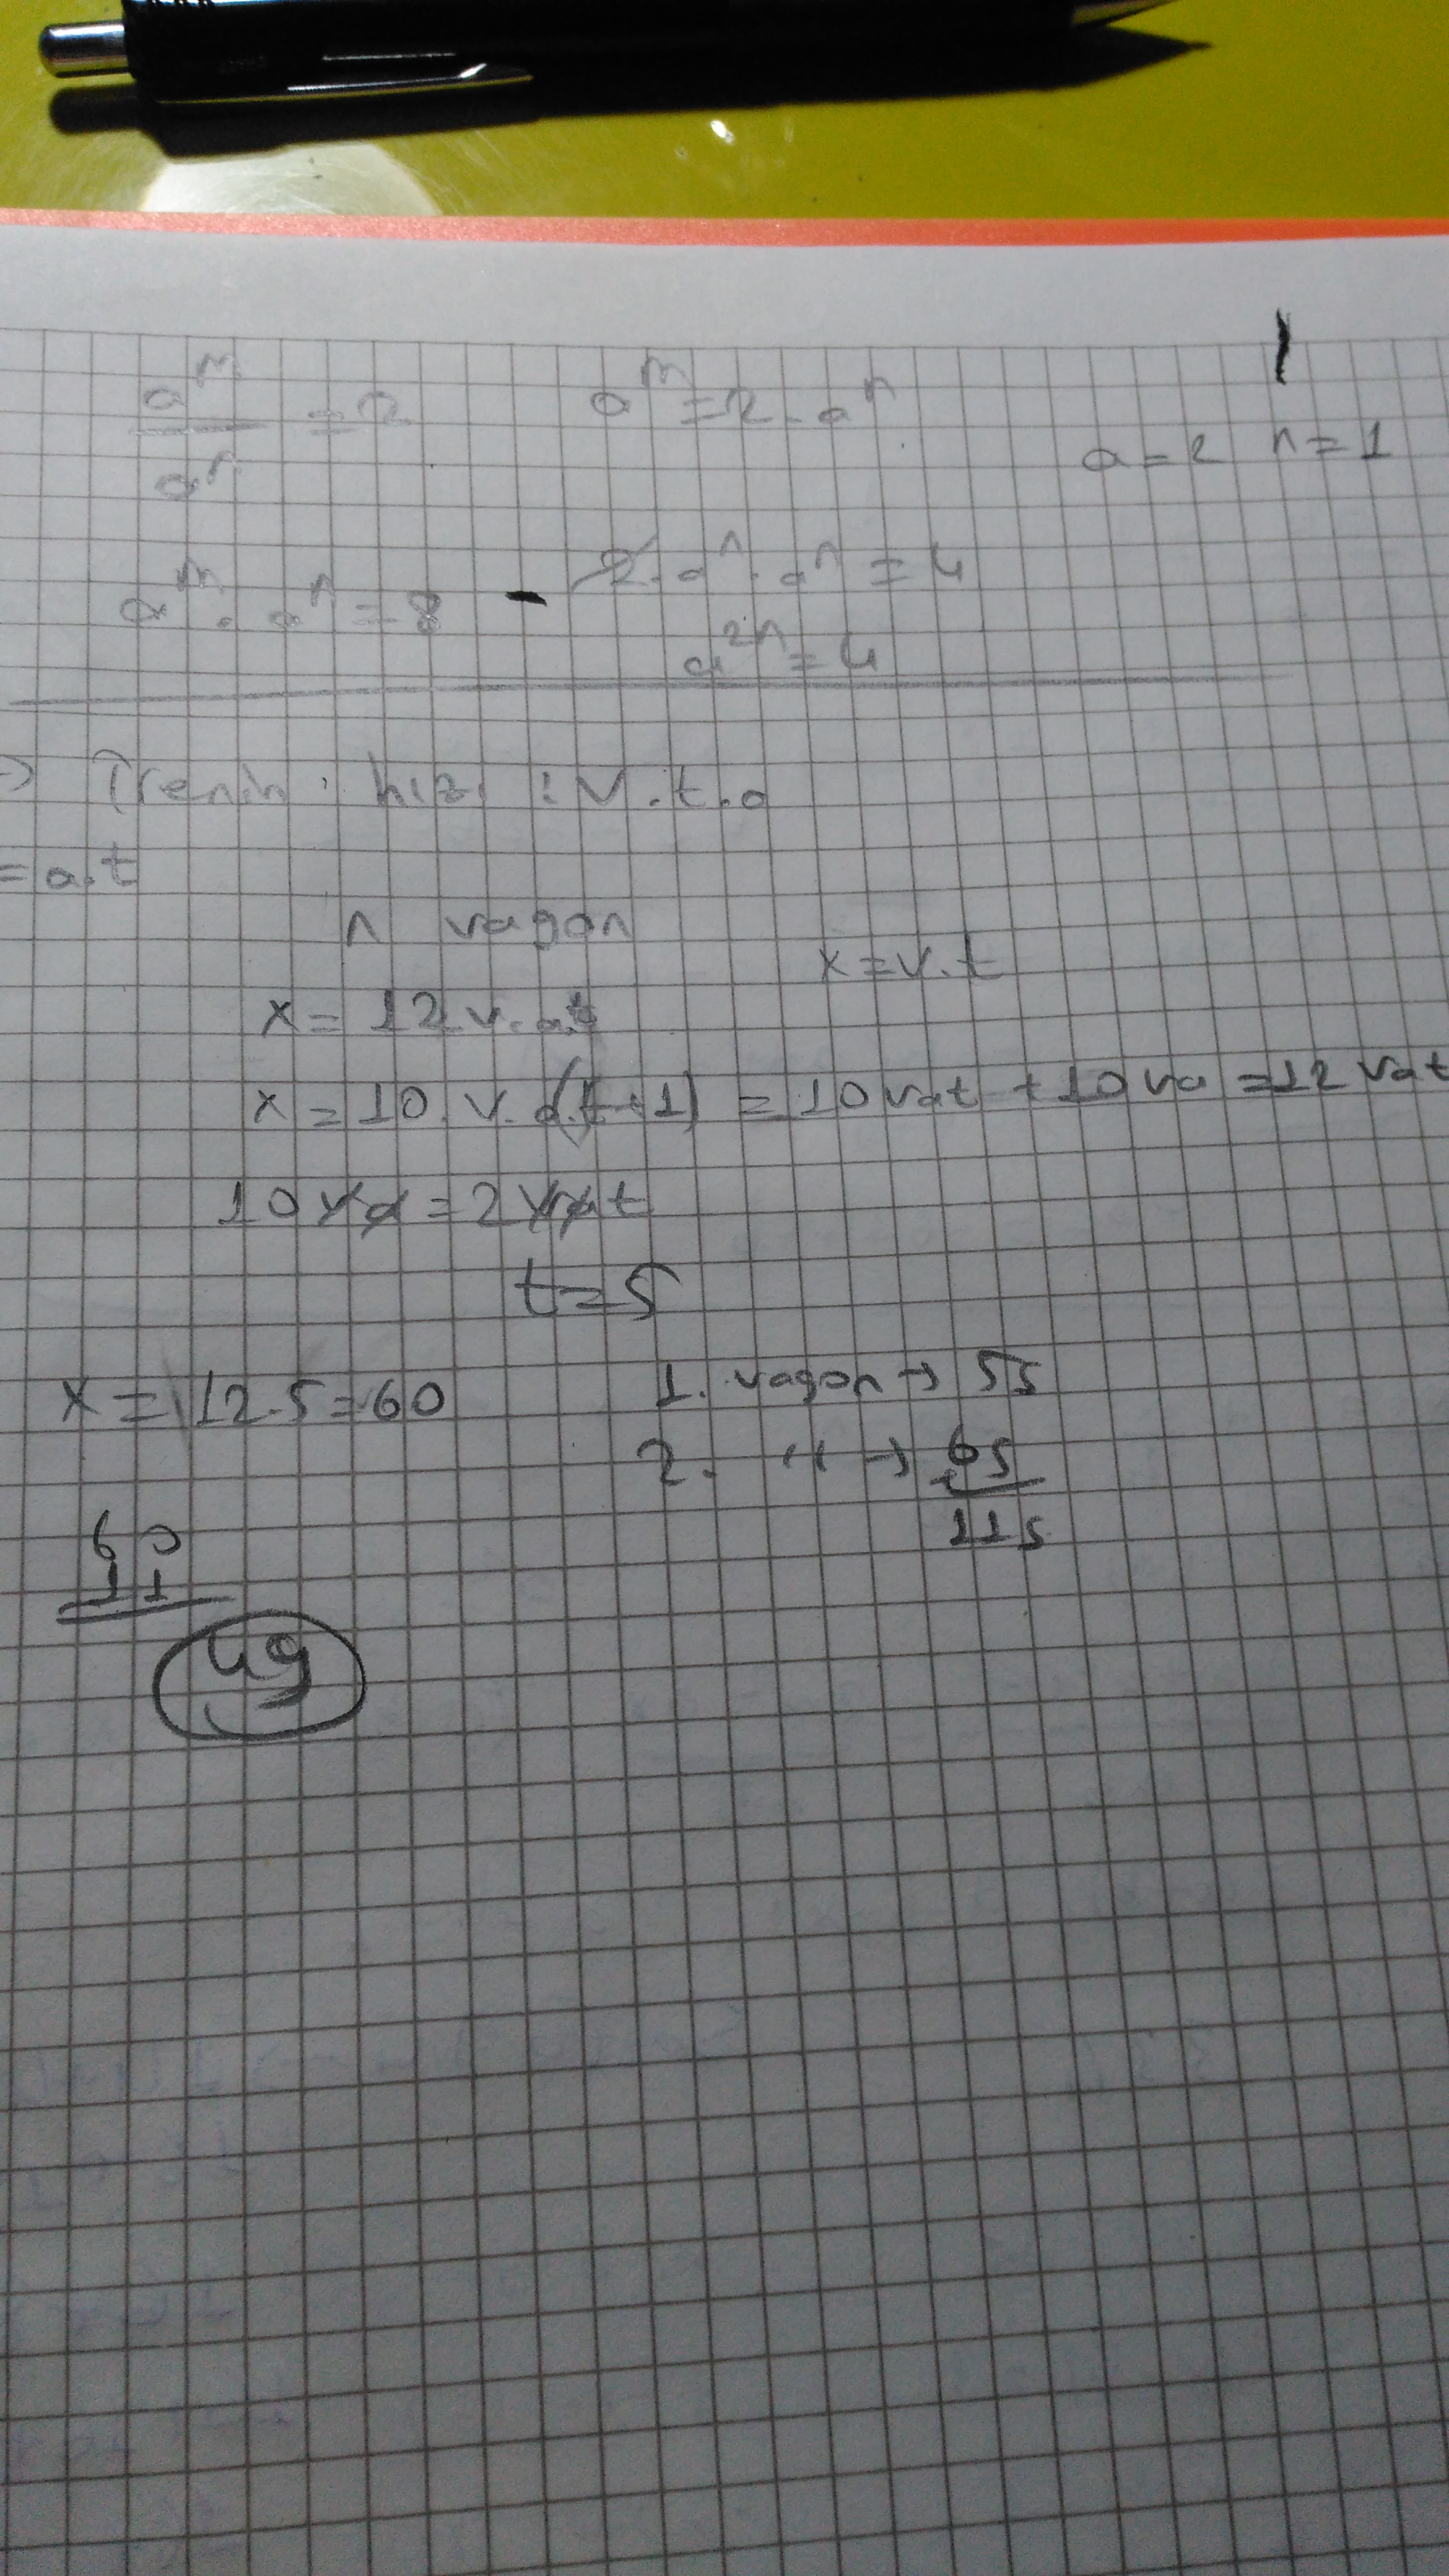 a^m / a^n = 2    a^m = 2 . a^n    a = 2 n = 1
a^m . a^n = 8    2 . a^n . a^n = 4
a^2n = 4
Trenin hızı : V . t . a
= a.t
n vagon
x = v . t
x = 12 v . at
x = 10 . v . a(t+1) = 10 vat + 10 va = 12 vat
10 va = 2 vat
t = 5
x = 12.5 = 60    1. vagon → 5s
2. " → 6s
11s
60
11
49